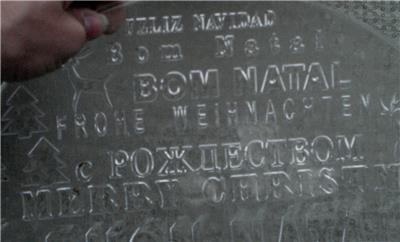 FELIZ NAVIDAD
Bom Natal
BOM NATAL
FROHE WEIHNACHTEN
с РОЖДЕСТВОМ
MERRY CHRISTM